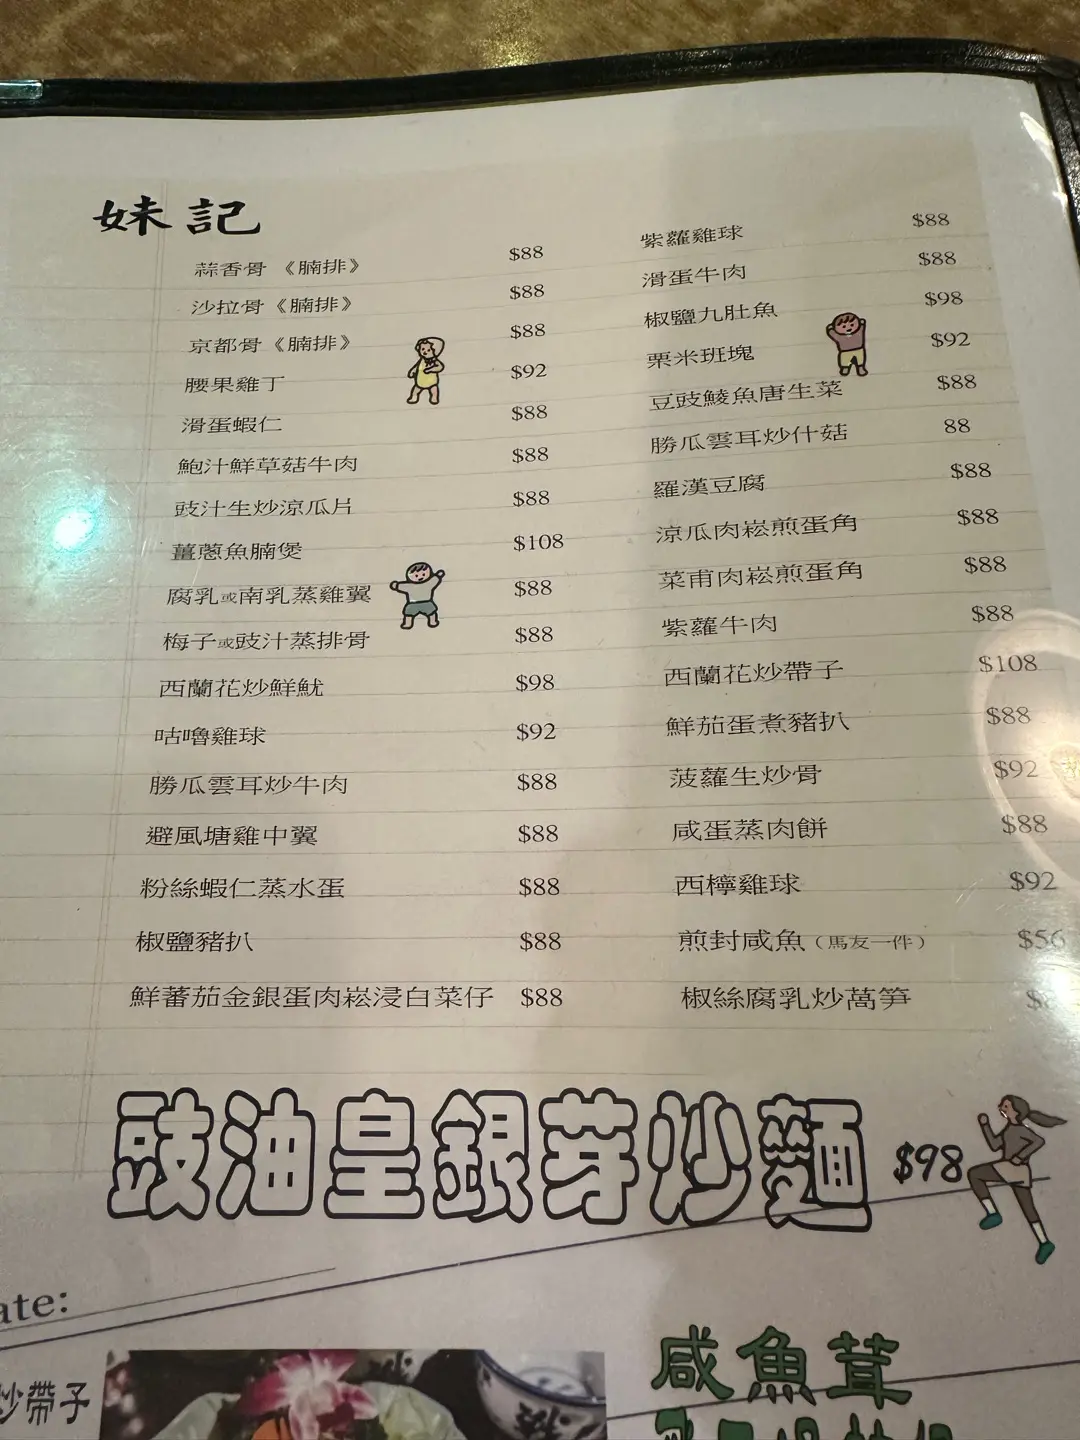 妹記
蒜香骨《腩排》 $88
沙拉骨《腩排》 $88
京都骨《腩排》 $88
腰果雞丁 $92
滑蛋蝦仁 $88
鮑汁鮮草菇牛肉 $88
豉汁生炒涼瓜片 $88
薑蔥魚腩煲 $108
腐乳或南乳蒸雞翼 $88
梅子或豉汁蒸排骨 $88
西蘭花炒鮮魷 $98
咕嚕雞球 $92
勝瓜雲耳炒牛肉 $88
避風塘雞中翼 $88
粉絲蝦仁蒸水蛋 $88
椒鹽豬扒 $88
鮮蕃茄金銀蛋肉崧浸白菜仔 $88
紫蘿雞球 $88
滑蛋牛肉 $88
椒鹽九肚魚 $98
栗米班塊 $92
豆豉鯪魚唐生菜 $88
勝瓜雲耳炒什菇 88
羅漢豆腐 $88
涼瓜肉崧煎蛋角 $88
菜甫肉崧煎蛋角 $88
紫蘿牛肉 $88
西蘭花炒帶子 $108
鮮茄蛋煮豬扒 $88
菠蘿生炒骨 $92
咸蛋蒸肉餅 $88
西檸雞球 $92
煎封咸魚（馬友一件） $56
椒絲腐乳炒萵笋
豉油皇銀芽炒麵 $98
ate:
炒帶子
咸魚茸